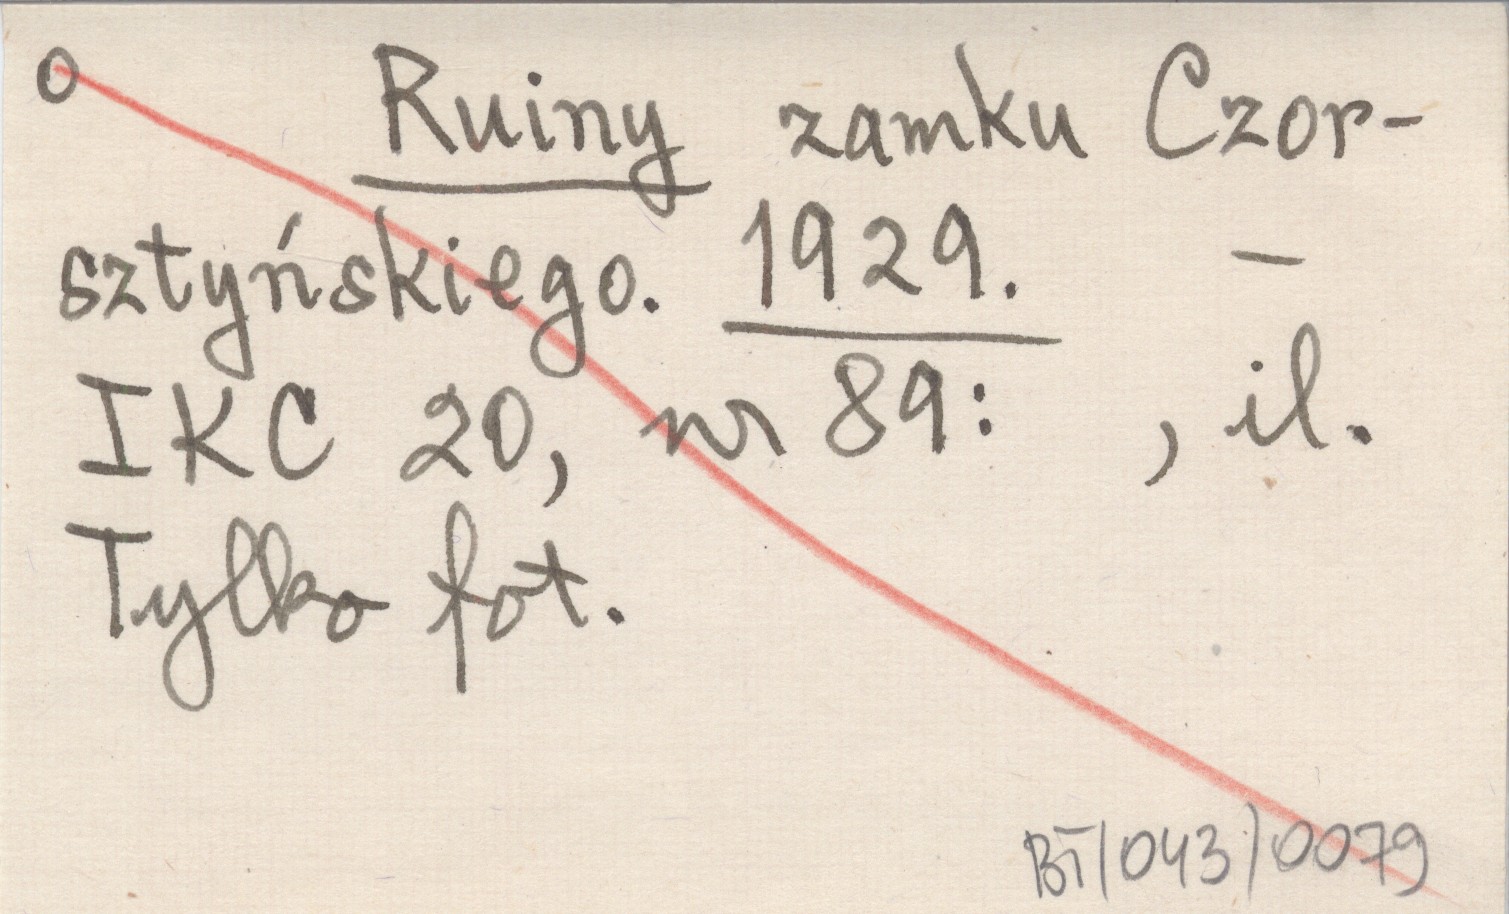 O Ruiny zamku Czor-
sztyńskiego. 1929. –
IKC 20, nr 89: , il.
Tylko fot.
BT/043/0079